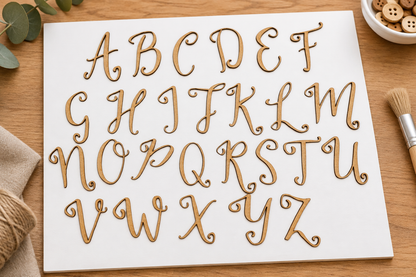 A B C D E F
G H I J K L M
N O P Q R S T U
V W X Y Z